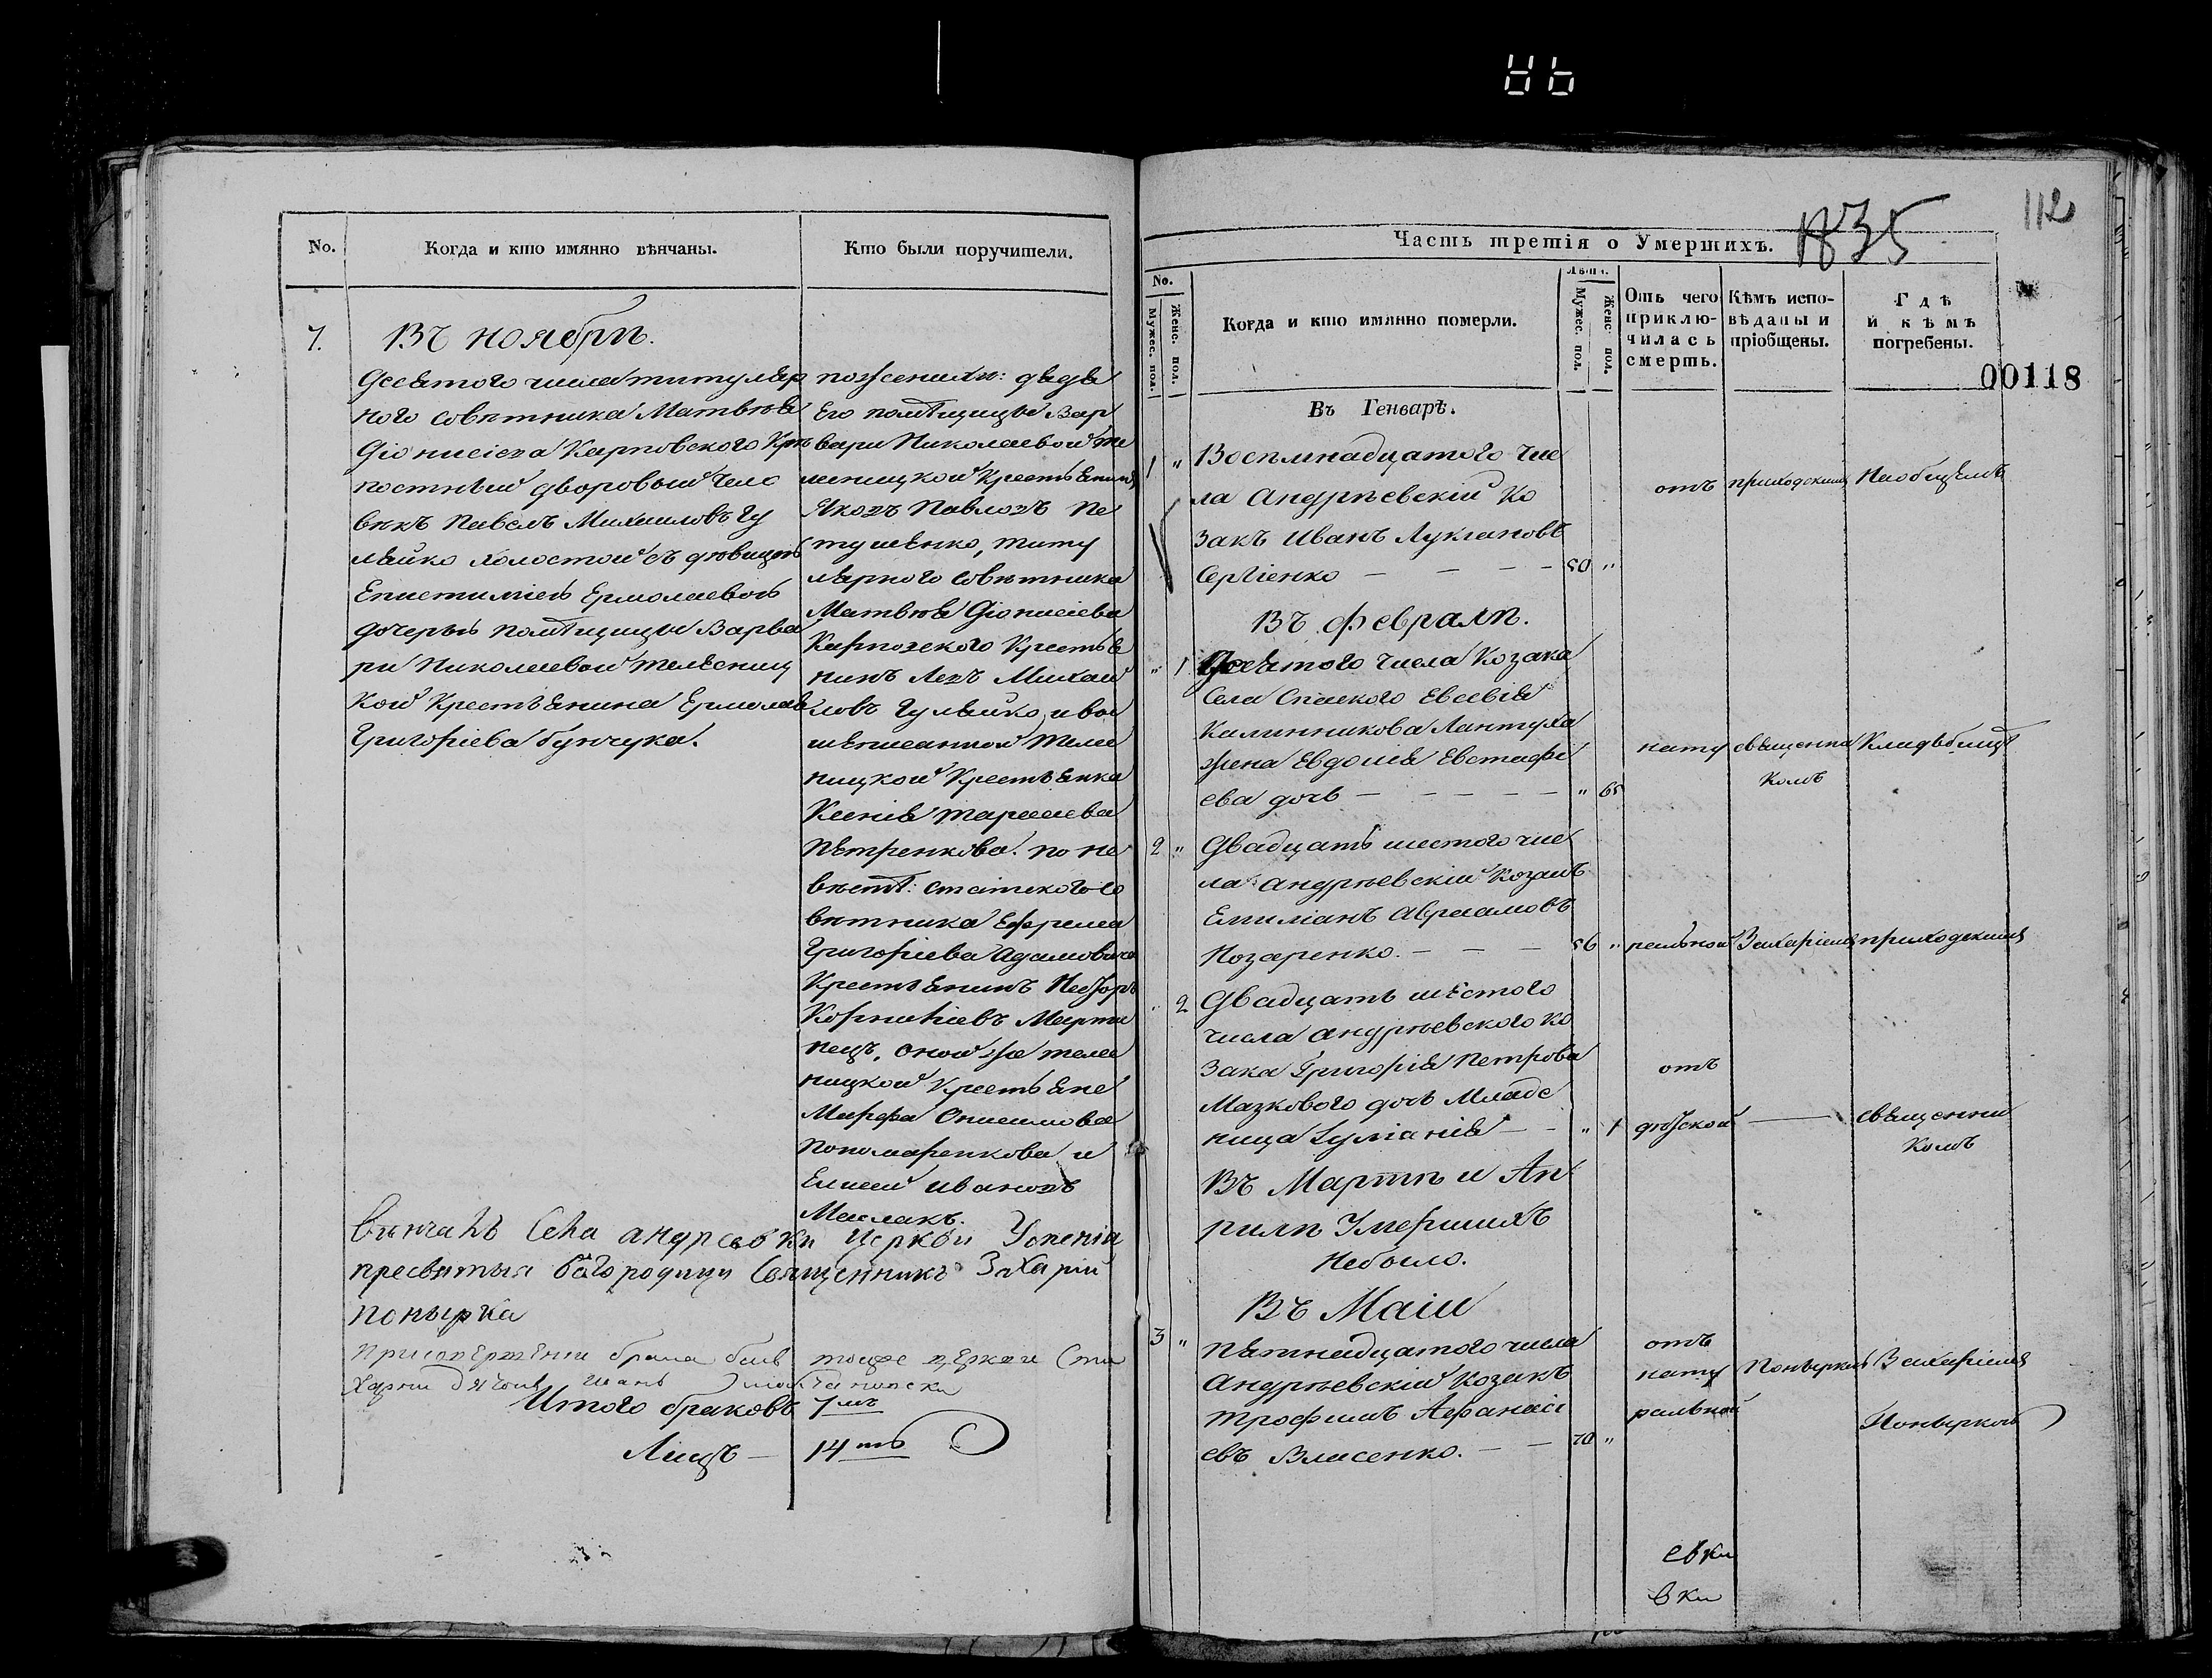 No.
Когда и кто имянно вѣнчаны.
Кто были поручители.
7.
Въ ноябрѣ.
Десятого числа титуляр
ного совѣтника Матвѣя
Діонисіева Карповского крѣ
постный дворовый чело
вѣкъ Павелъ Михаиловъ Гу
ляйко холостой съ дѣвицею
Епистиміею Ермолаевою
дочерью помѣщицы Варва
ри Николаевой
кой крестьянина Ермолая
Григоріева Бунчука.
по женихѣ: дядя
Его помѣщицы Вар
вари Николаевой
крестьянинъ
Яковъ Павловъ Пе
тушенко, титу
лярного совѣтника
Матвѣя Діонисіева
Карповского крестья
нинъ Левъ Михай
ловъ Гуляйко, и вы
шеписанной
ницкой крестьянка
Ксенія Тарасіева
Петренкова. по не
вѣстѣ: статского со
вѣтника Ефрема
Григоріева Адамовича
крестьянинъ
Корниліевъ Марти
нецъ, оной же
ницкой крестьяне
Марфа Онисимова
Пономаренкова и
Елисей Ивановъ
Маслакъ.
Вѣнчалъ Села андреевки Церкви Успенія
пресвятыя бгородици Священникъ Захарій
понырка
При сопряженіи брака былъ тоеже церкви
дячокъ Иванъ
Итого браковъ 7мь
Лицъ — 14ть
1835
112
Часть третія о Умершихъ.
No.
Мужес. пол.
Женс. пол.
Когда и кто имянно померли.
Лѣта.
Мужес. пол.
Женс. пол.
Отъ чего
приклю-
чилась
смерть.
Кѣмъ испо-
вѣданы и
пріобщены.
Гдѣ
и кѣмъ
погребены.
00118
Въ Генварѣ.
1 " Восемнадцатого чис
ла Андрѣевскій ко
закъ Иванъ Лукіановъ
Сергіенко — — — — 50 "
отъ приходскимъ На общемъ
Въ февралѣ.
" 1 Десятого числа козака
Села Спаского Евсевія
Калинникова Лантуха
жена Евдокія Евстафі
ева дочь — — — — — " 65
нату священни кладбищѣ
комъ
2 " Двадцать шестого чис
ла андрѣевскій козакъ
Емиліанъ Авраамовъ
Назаренко. — — — 56 "
ральной Захаріемъ приходскимъ
" 2 Двадцать шестого
числа андрѣевского ко
зака Григорія Петрова
Мазкового дочь Младе
ница Іуліанія — — " 1
отъ
дѣтской — священни
комъ
Въ Мартѣ и Ап
рилѣ Умершихъ
Небыло.
Въ Маіи
3 " Пятнадцатого числа
Андрѣевскій козакъ
Трофимъ Афанасі
евъ Власенко. — — 70 "
отъ
нату Поныркою Захаріемъ
ральной
Поныркою
евки
вки